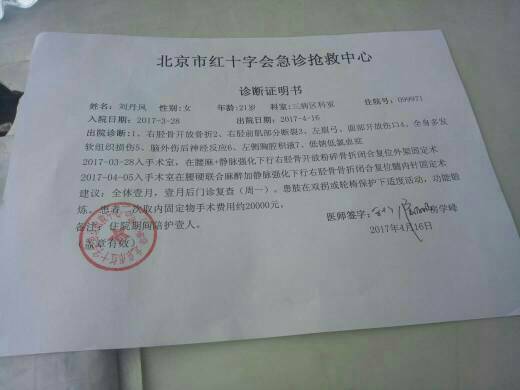 北京市红十字会急诊抢救中心
诊断证明书
姓名：刘丹凤 性别:女 年龄:21岁 科室:三病区科室 住院号：099971
入院日期：2017-3-28 出院日期：2017-4-16
出院诊断:1、右胫骨开放骨折2、右胫前肌部分断裂3、左眉弓、面部开放伤口4、全身多发
软组织损伤5、脑外伤后神经反应6、左侧胸腔积液7、低钠低氯血症
2017-03-28入手术室，在腰麻+静脉强化下行右胫骨开放粉碎骨折闭合复位外架固定术
2017-04-05入手术室在腰硬联合麻醉加静脉强化下行右胫骨骨折闭合复位髓内针固定术
建议：全休壹月，壹月后门诊复查（周一）。患肢在双拐或轮椅保护下适度活动，功能锻
炼。患者二次取内固定物手术费用约20000元。
备注：住院期间陪护壹人。
医师签字： 房学峰
（盖章有效） 2017年4月16日